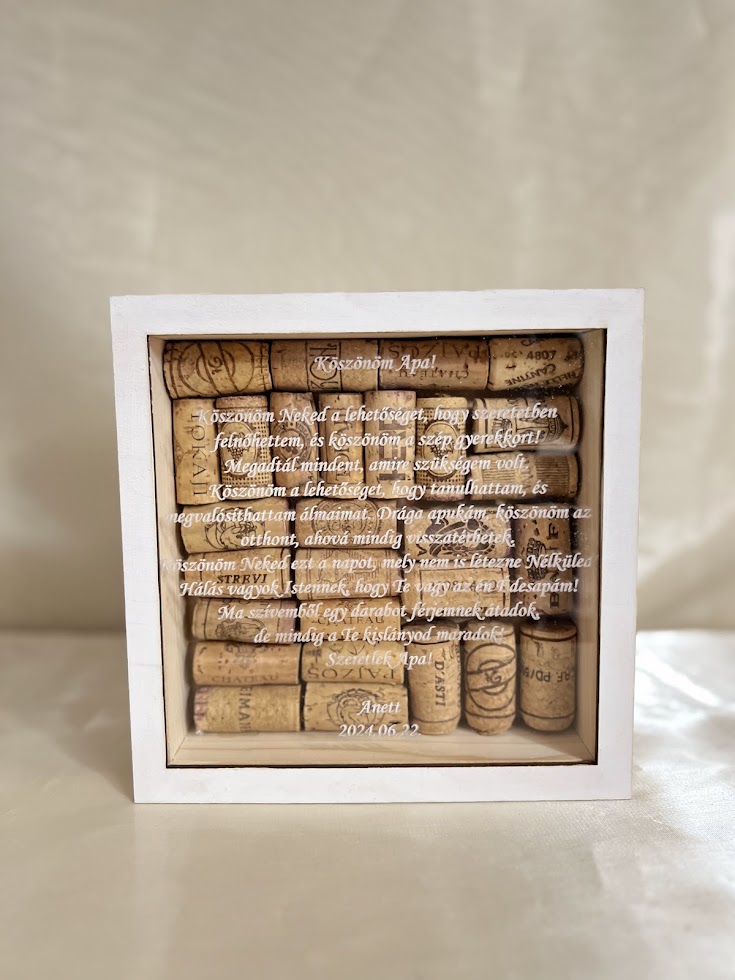 Köszönöm Apa!
Köszönöm Neked a lehetőséget, hogy szeretetben
felnőhettem, és köszönöm a szép gyerekkort!
Megadtál mindent, amire szükségem volt.
Köszönöm a lehetőséget, hogy tanulhattam, és
megvalósíthattam álmaimat. Drága apukám, köszönöm az
otthont, ahová mindig visszatérhetek.
Köszönöm Neked ezt a napot, mely nem is létezne Nélküled
Hálás vagyok Istennek, hogy Te vagy az én Édesapám!
Ma szívemből egy darabot férjemnek átadok,
de mindig a Te kislányod maradok!
Szeretlek Apa!
Anett
2024.06.22.
4807
TOKAJI
CHATEAU
PAJZOS
D'ASTI